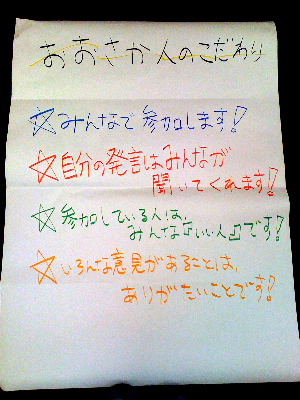 おおさか人のこだわり
☆みんなで参加します!
☆自分の発言はみんなが
聞いてくれます!
☆参加している人は、
みんな『いい人』です!
☆いろんな意見があることは、
ありがたいことです!